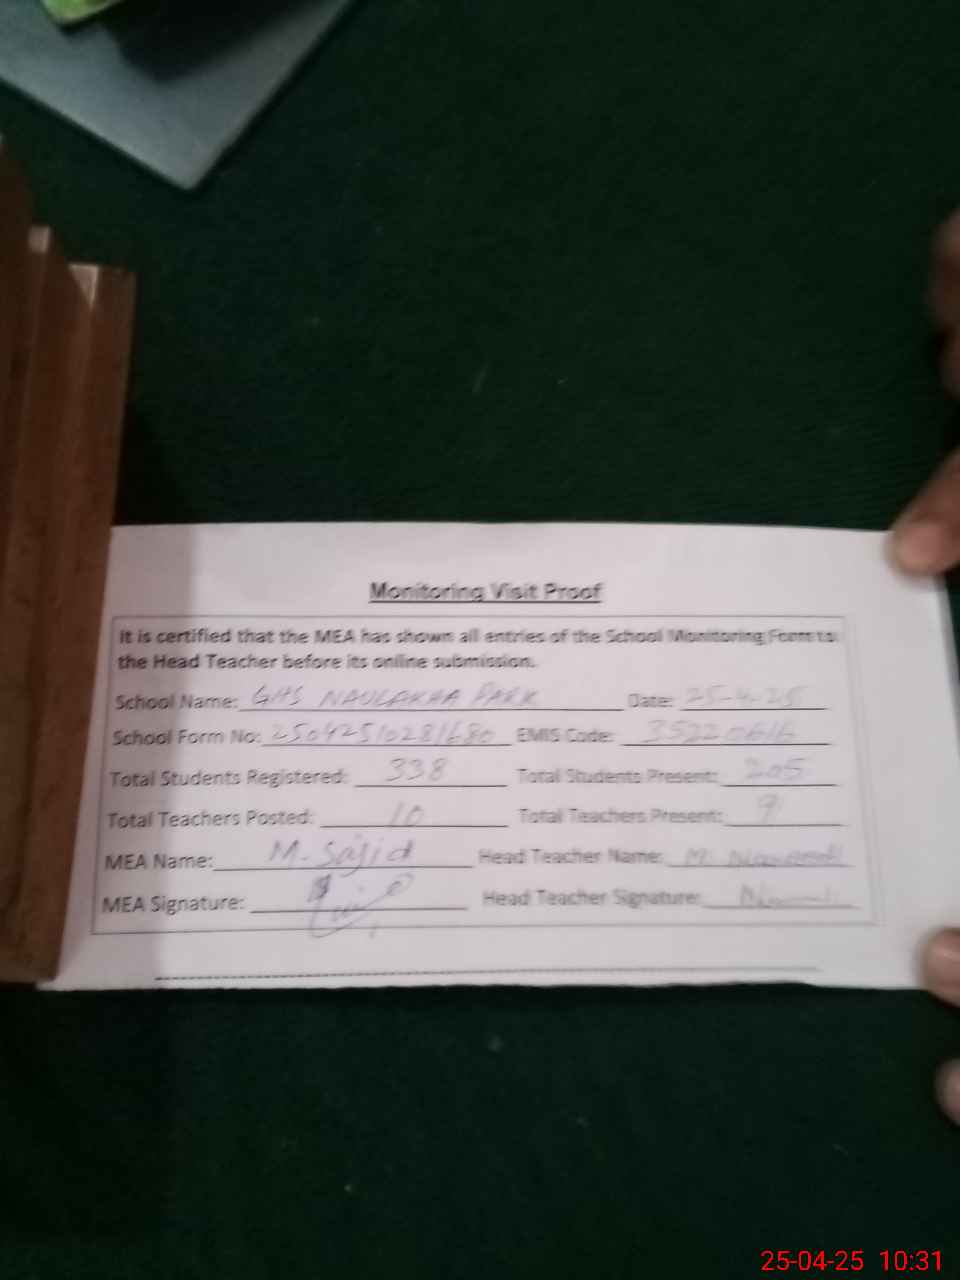 Monitoring Visit Proof
It is certified that the MEA has shown all entries of the School Monitoring Form to
the Head Teacher before its online submission.
School Name: GHS NAULAKHA PARK Date: 25-4-25
School Form No: 25042510281680 EMIS Code: 35220616
Total Students Registered: 338 Total Students Present: 205
Total Teachers Posted: 10 Total Teachers Present: 9
MEA Name: M. Sajid Head Teacher Name: M.
MEA Signature: Head Teacher Signature:
25-04-25 10:31